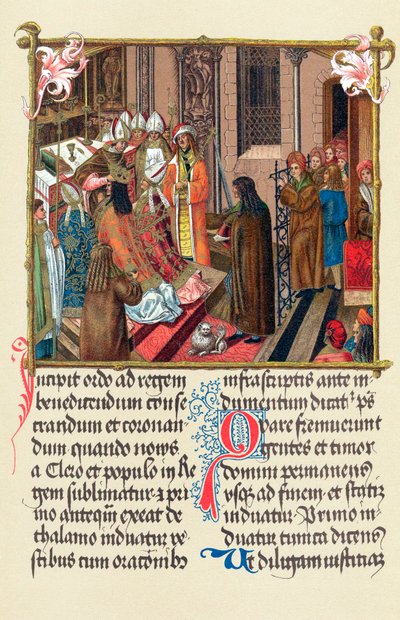 Incipit ordo ad regem
benedicendum conse
crandum et coronan
dum quando nouus
a Clero et populo in Re
gem sublimatur et pri
mo anteqm̄ exeat de
thalamo induatur ve
stibus cum oracōnibꝫ
infrascriptis ante in
dumentum dicatꝛ ps
Quare fremuerunt
gentes et timor
domini permanens
vsqꝫ ad finem et statim
induatur Primo in
duatur tunica dicens
Ut diligam iusticiam